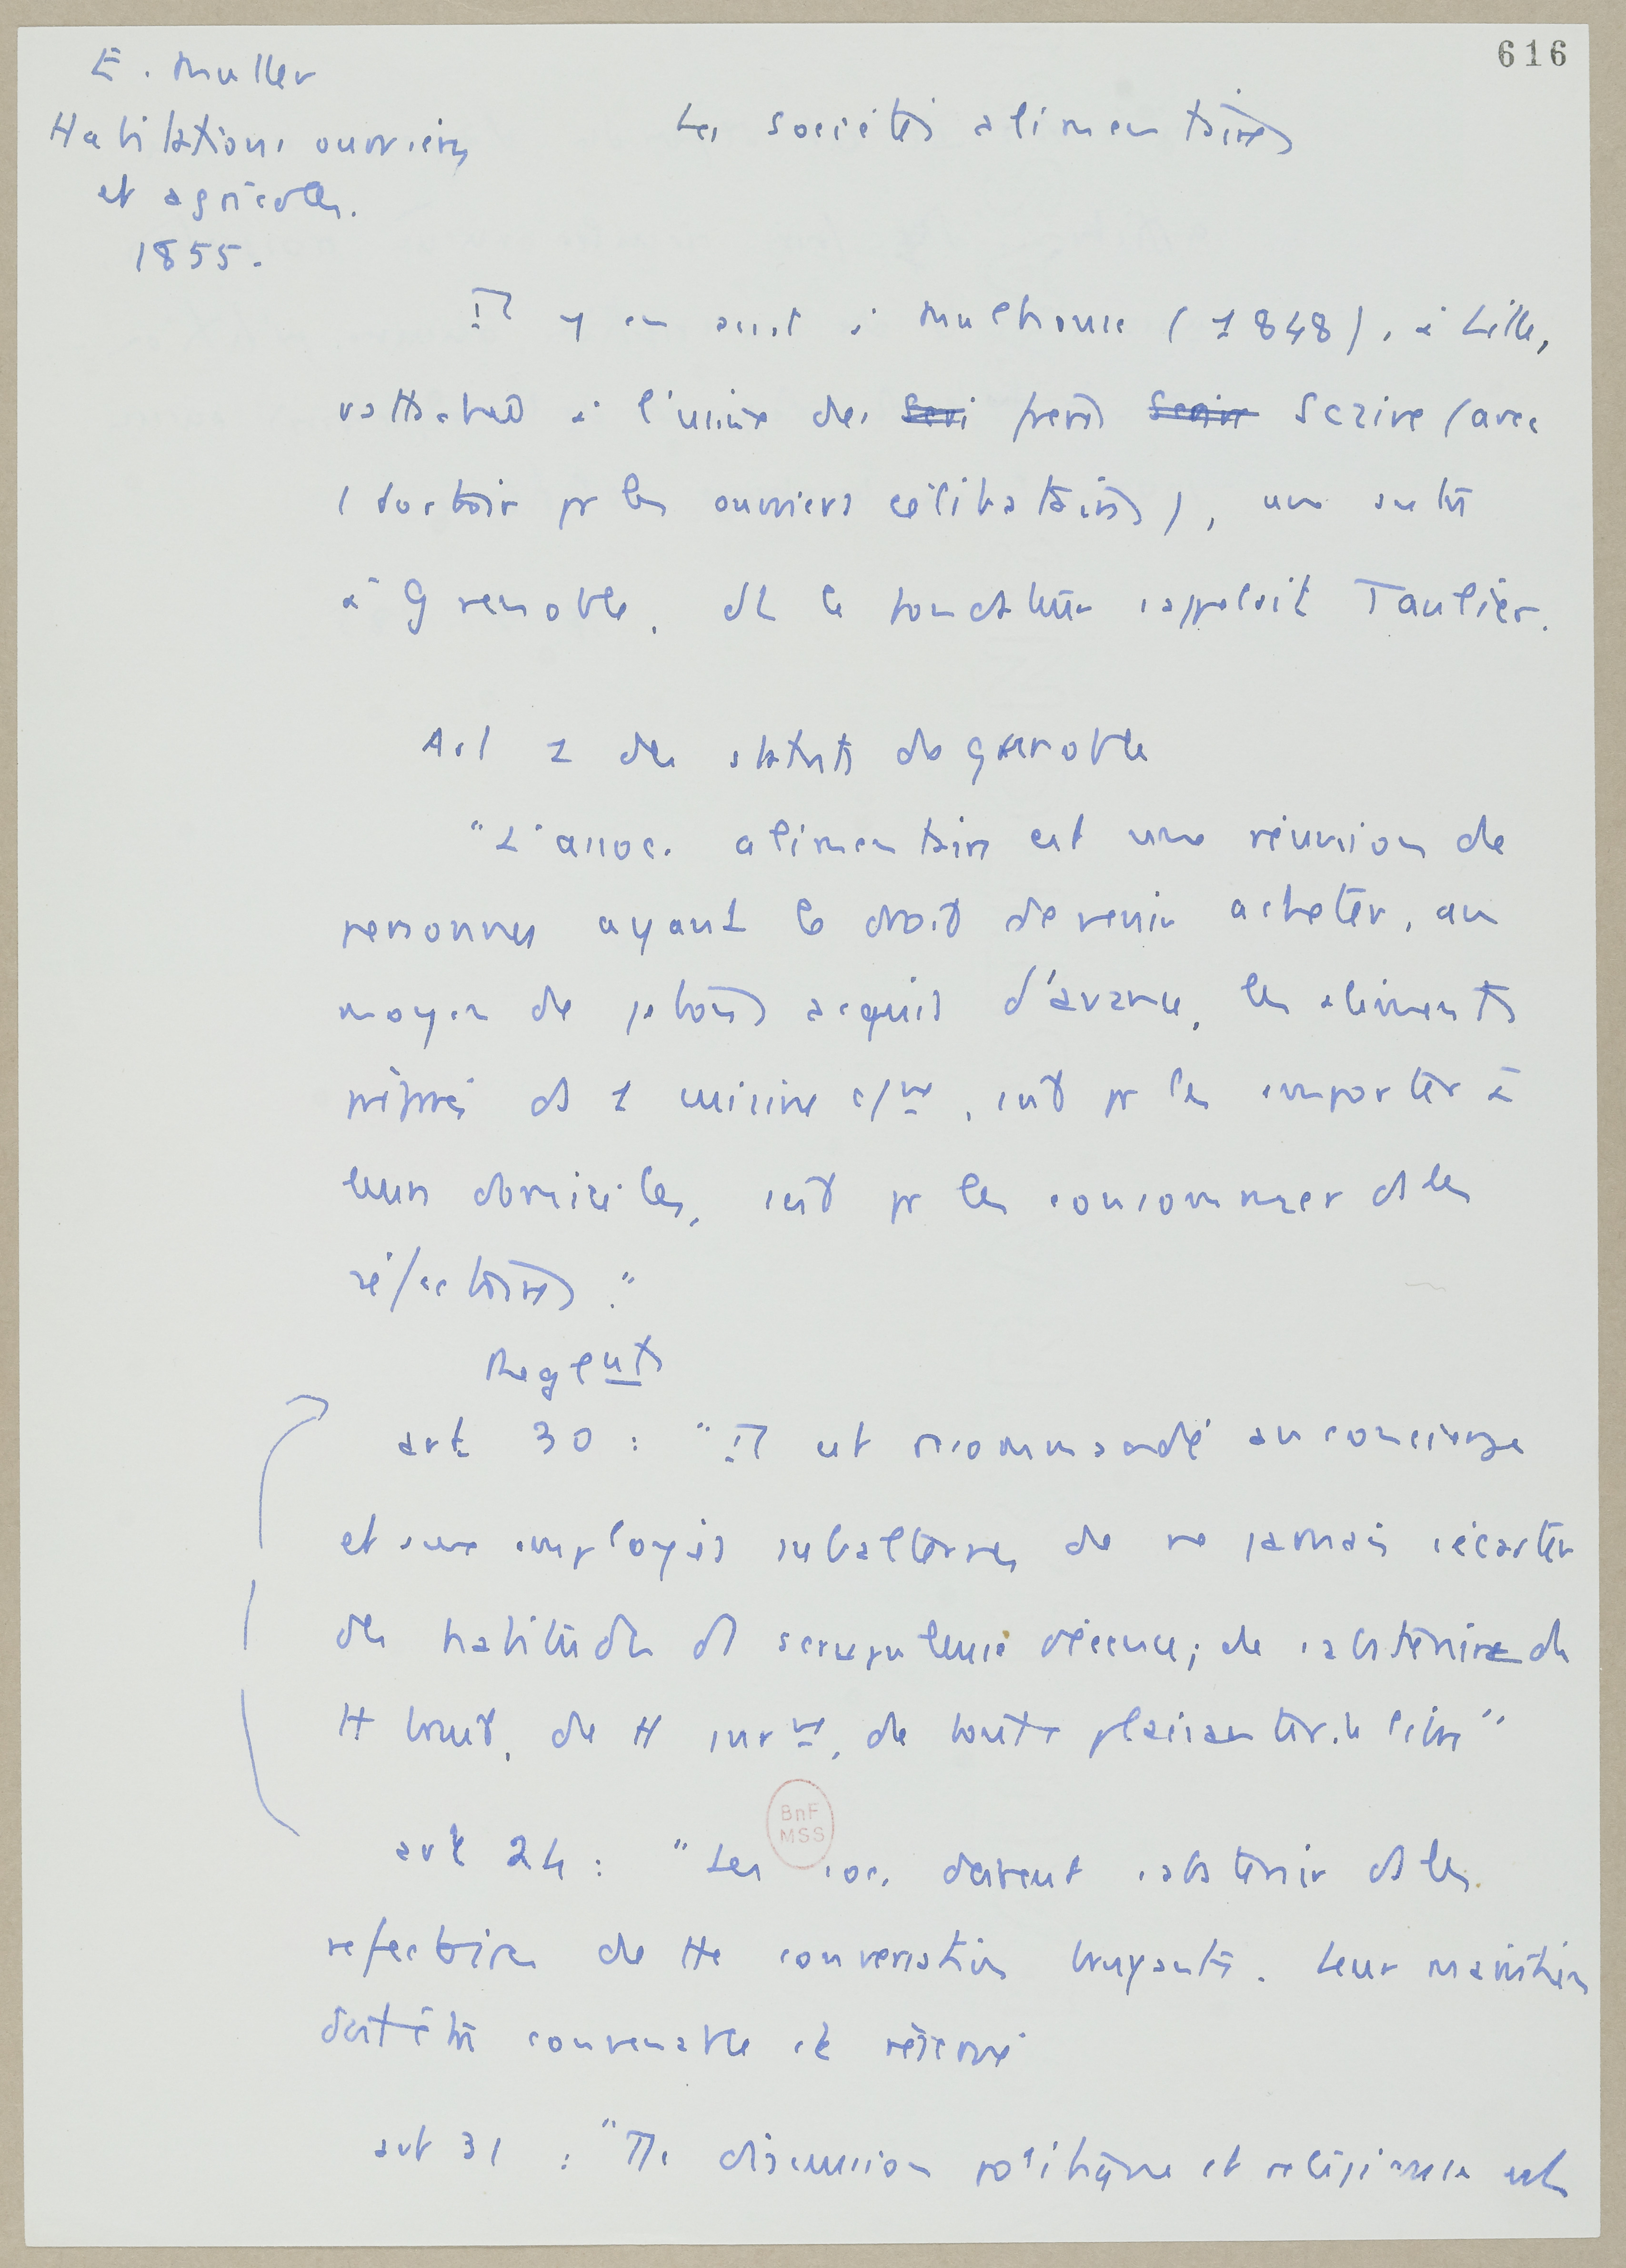 616
E. Muller
Habitations ouvrières
et agricoles.
1855.
Les sociétés alimentaires
Il y en avait à Mulhouse (1848), à Lille,
rattachée à l'usine des Scri frères Scrive Scrive (avec
1 dortoir pr les ouvriers célibataires), une autre
à Grenoble, dt le fondateur s'appelait Taulier.
Art 1 des statuts de Grenoble
"L'assoc. alimentaire est une réunion de
personnes ayant le droit de venir acheter, au
moyen de jetons acquis d'avance, les aliments
préparés ds 1 cuisine c/ne, soit pr les emporter à
leurs domiciles, soit pr les consommer ds les
réfectoires."
Reglents
art 30 : "Il est recommandé au concierge
et aux employés subalternes de ne jamais s'écarter
des habitudes de scrupuleuse décence; de s'abstenir de
tt bruit, de tt jurnt, de toute plaisanterie libre"
art 24 : "Les soc. doivent s'abstenir ds les
refectoires de tte conversation bruyante. Leur maintien
doit être convenable et réservé
art 31 : "Tte discussion politique et religieuse est
BnF
MSS